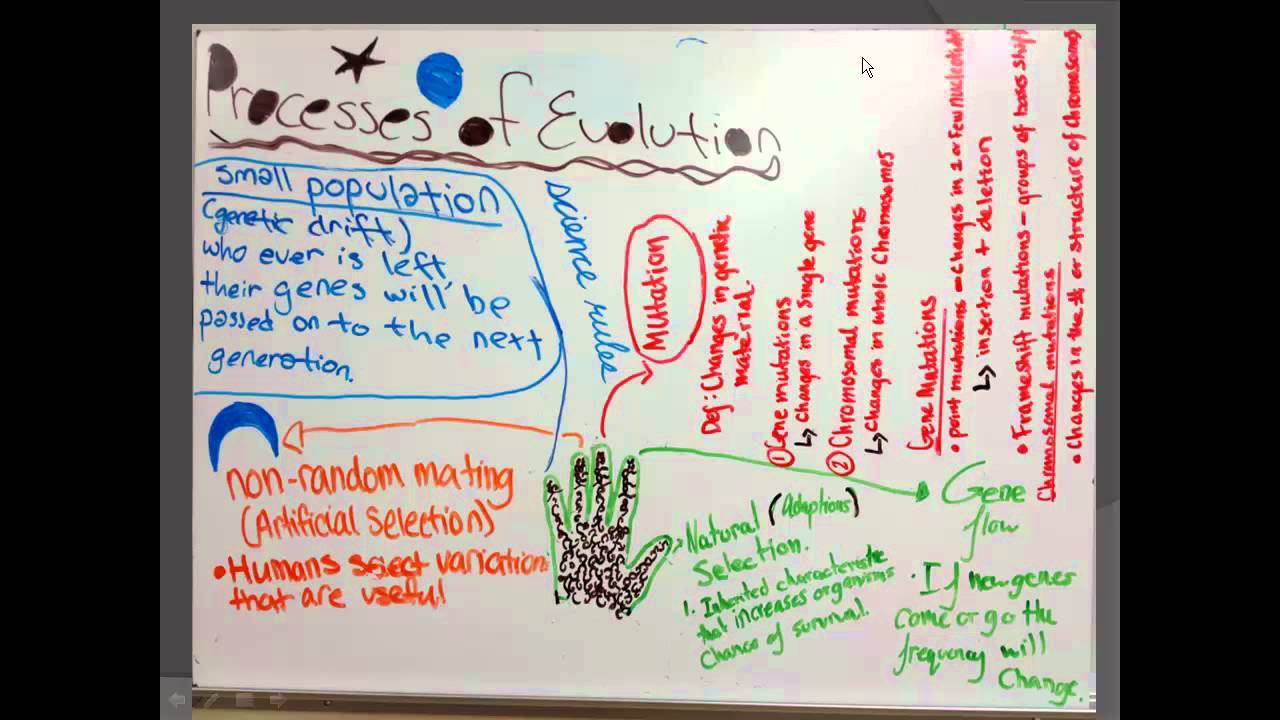 Processes of Evolution
small population
(genetic drift)
who ever is left
their genes will be
passed on to the next
generation.
science rules
Mutation
Def: Changes in genetic
material.
① Gene mutations
↳ changes in a single gene
② Chromosomal mutations
↳ changes in whole chromosomes
Gene Mutations
• point mutations - changes in 1 or few nucleotid
↳ insertion + deletion
• Frameshift mutations - groups of bases shif
Chromosomal mutations
• changes in the # or structure of chromosome
non-random mating
(Artificial Selection)
• Humans select variation
that are useful
Natural (Adaptions)
Selection.
1. Inherited characteristic
that increases organisms
chance of survival.
Gene
flow
• If new genes
come or go the
frequency will
Change.